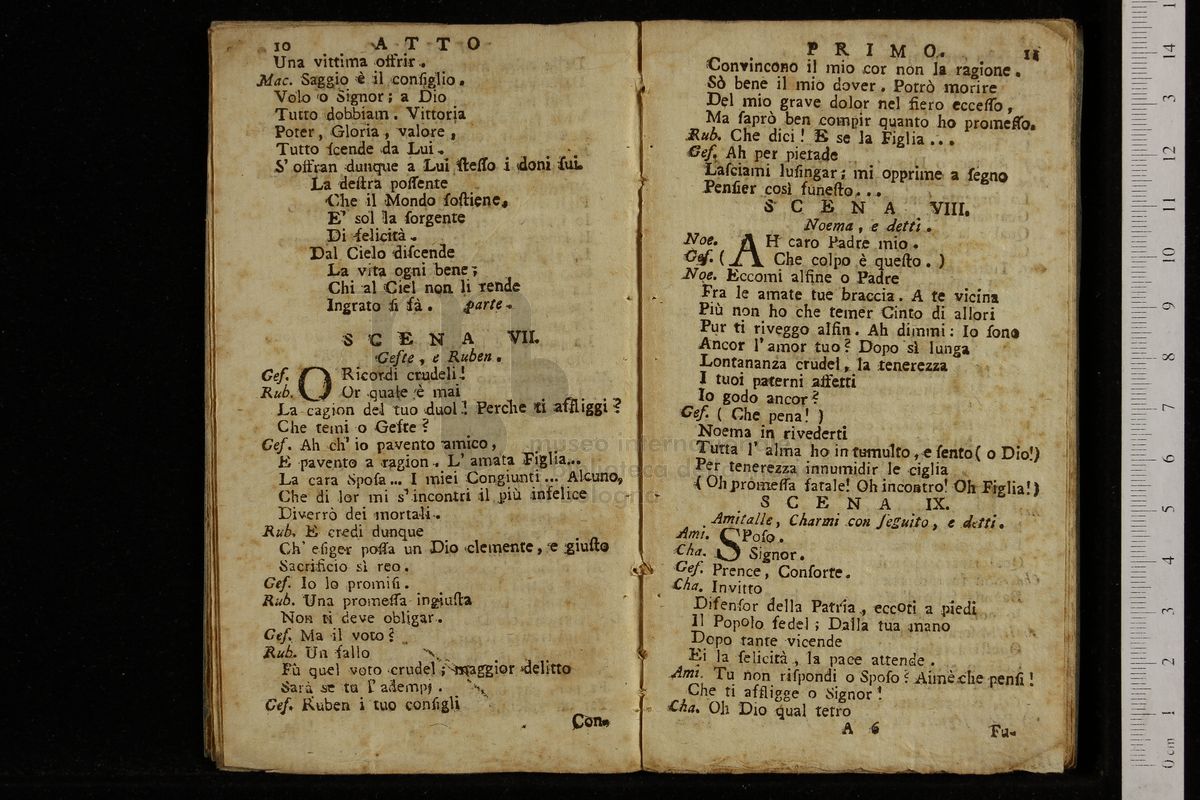 10 ATTO
Una vittima offrir.
Mac. Saggio è il consiglio.
Volo o Signor; a Dio
Tutto dobbiam. Vittoria
Poter, Gloria, valore,
Tutto ſcende da Lui.
S' offran dunque a Lui ſteſſo i doni ſui.
La deſtra poſſente
Che il Mondo ſoſtiene,
E' sol la ſorgente
Di felicità.
Dal Cielo diſcende
La vita ogni bene;
Chi al Ciel non li rende
Ingrato ſi fà. parte.
SCENA VII.
Gefte, e Ruben.
Gef. O Ricordi crudeli!
Rub. Or quale è mai
La cagion del tuo duol! Perche ti affliggi?
Che temi o Gefte?
Gef. Ah ch' io pavento amico,
E pavento a ragion. L' amata Figlia...
La cara Spoſa... I miei Congiunti... Alcuno,
Che di lor mi s' incontri il più infelice
Diverrò dei mortali.
Rub. E credi dunque
Ch' eſiger poſſa un Dio clemente, e giuſto
Sacrificio sì reo.
Gef. Io lo promiſi.
Rub. Una promeſſa ingiuſta
Non ti deve obligar.
Gef. Ma il voto?
Rub. Un fallo
Fù quel voto crudel; maggior delitto
Sarà se tu l' adempj.
Gef. Ruben i tuo conſigli
Con-
PRIMO. 11
Convincono il mio cor non la ragione.
Sò bene il mio dover. Potrò morire
Del mio grave dolor nel fiero ecceſſo,
Ma ſaprò ben compir quanto ho promeſſo.
Rub. Che dici! E se la Figlia...
Gef. Ah per pietade
Laſciami luſingar; mi opprime a ſegno
Penſier così funeſto...
SCENA VIII.
Noema, e detti.
Noe. AH caro Padre mio.
Gef. ( Che colpo è queſto. )
Noe. Eccomi alfine o Padre
Fra le amate tue braccia. A te vicina
Più non ho che temer Cinto di allori
Pur ti riveggo alfin. Ah dimmi: Io ſono
Ancor l' amor tuo? Dopo sì lunga
Lontananza crudel, la tenerezza
I tuoi paterni affetti
Io godo ancor?
Gef. ( Che pena! )
Noema in rivederti
Tutta l' alma ho in tumulto, e ſento ( o Dio!)
Per tenerezza innumidir le ciglia
( Oh promeſſa fatale! Oh incontro! Oh Figlia!)
SCENA IX.
Amitalle, Charmi con ſeguito, e detti.
Ami. SPoſo.
Cha. Signor.
Gef. Prence, Conſorte.
Cha. Invitto
Difenſor della Patria, eccoti a piedi
Il Popolo fedel; Dalla tua mano
Dopo tante vicende
Ei la felicità, la pace attende.
Ami. Tu non riſpondi o Spoſo? Aimè che penſi!
Che ti affligge o Signor!
Cha. Oh Dio qual tetro
A 6 Fu-